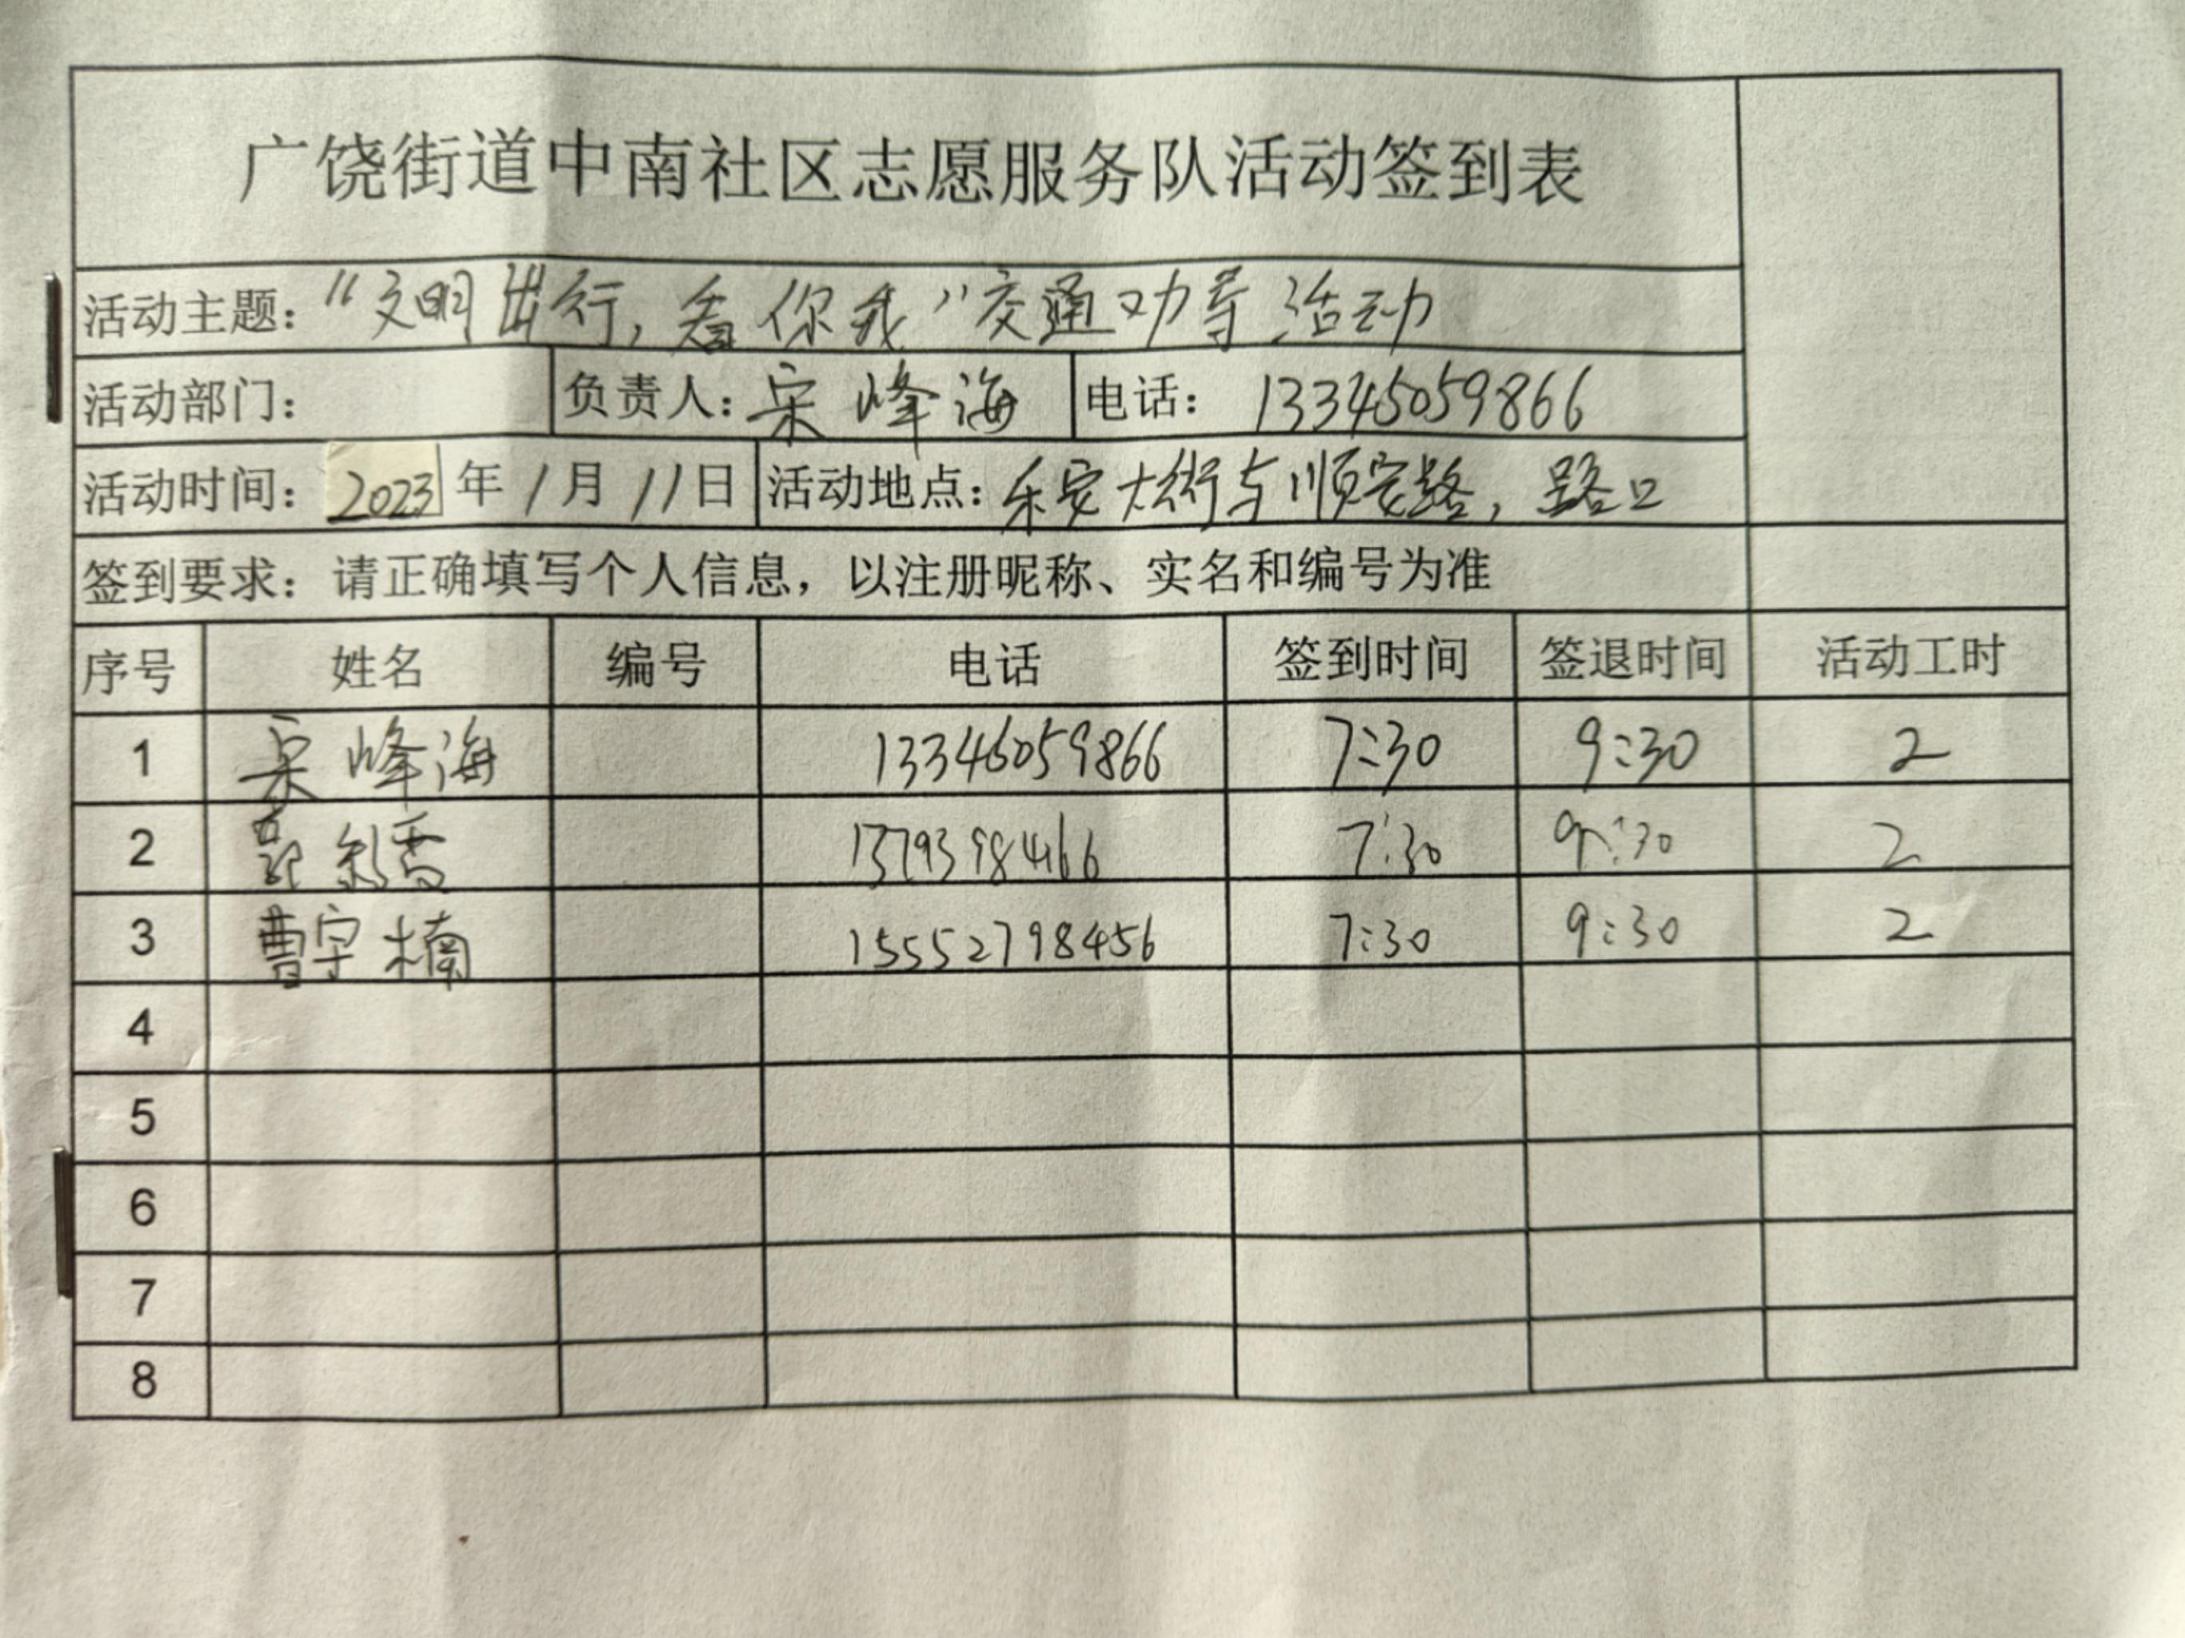 广饶街道中南社区志愿服务队活动签到表
活动主题："文明出行，看你我"交通劝导活动
活动部门： 负责人：宋峰海 电话：13345059866
活动时间：2023年1月11日 活动地点：乐安大街与顺安路，路口
签到要求：请正确填写个人信息，以注册昵称、实名和编号为准
序号 姓名 编号 电话 签到时间 签退时间 活动工时
1 宋峰海 13346059866 7:30 9:30 2
2 13793984166 7:30 9:30 2
3 曹宇楠 15552798456 7:30 9:30 2
4
5
6
7
8